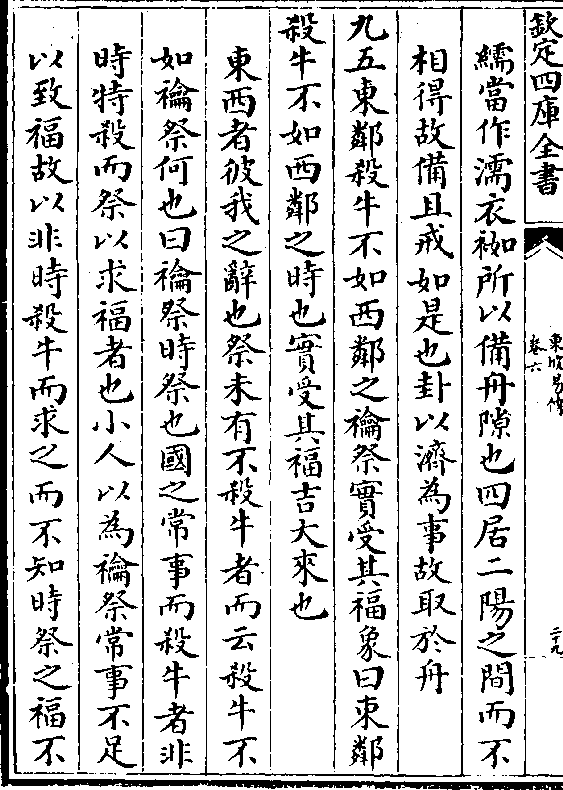 欽定四庫全書
東坡易傳
卷六
二十九
繻當作濡衣袽所以備舟隙也四居二陽之間而不
相得故備且戒如是也卦以濟為事故取於舟
九五東鄰殺牛不如西鄰之禴祭實受其福象曰東鄰
殺牛不如西鄰之時也實受其福吉大來也
東西者彼我之辭也祭未有不殺牛者而云殺牛不
如禴祭何也曰禴祭時祭也國之常事而殺牛者非
時特殺而祭以求福者也小人以為禴祭常事不足
以致福故以非時殺牛而求之而不知時祭之福不